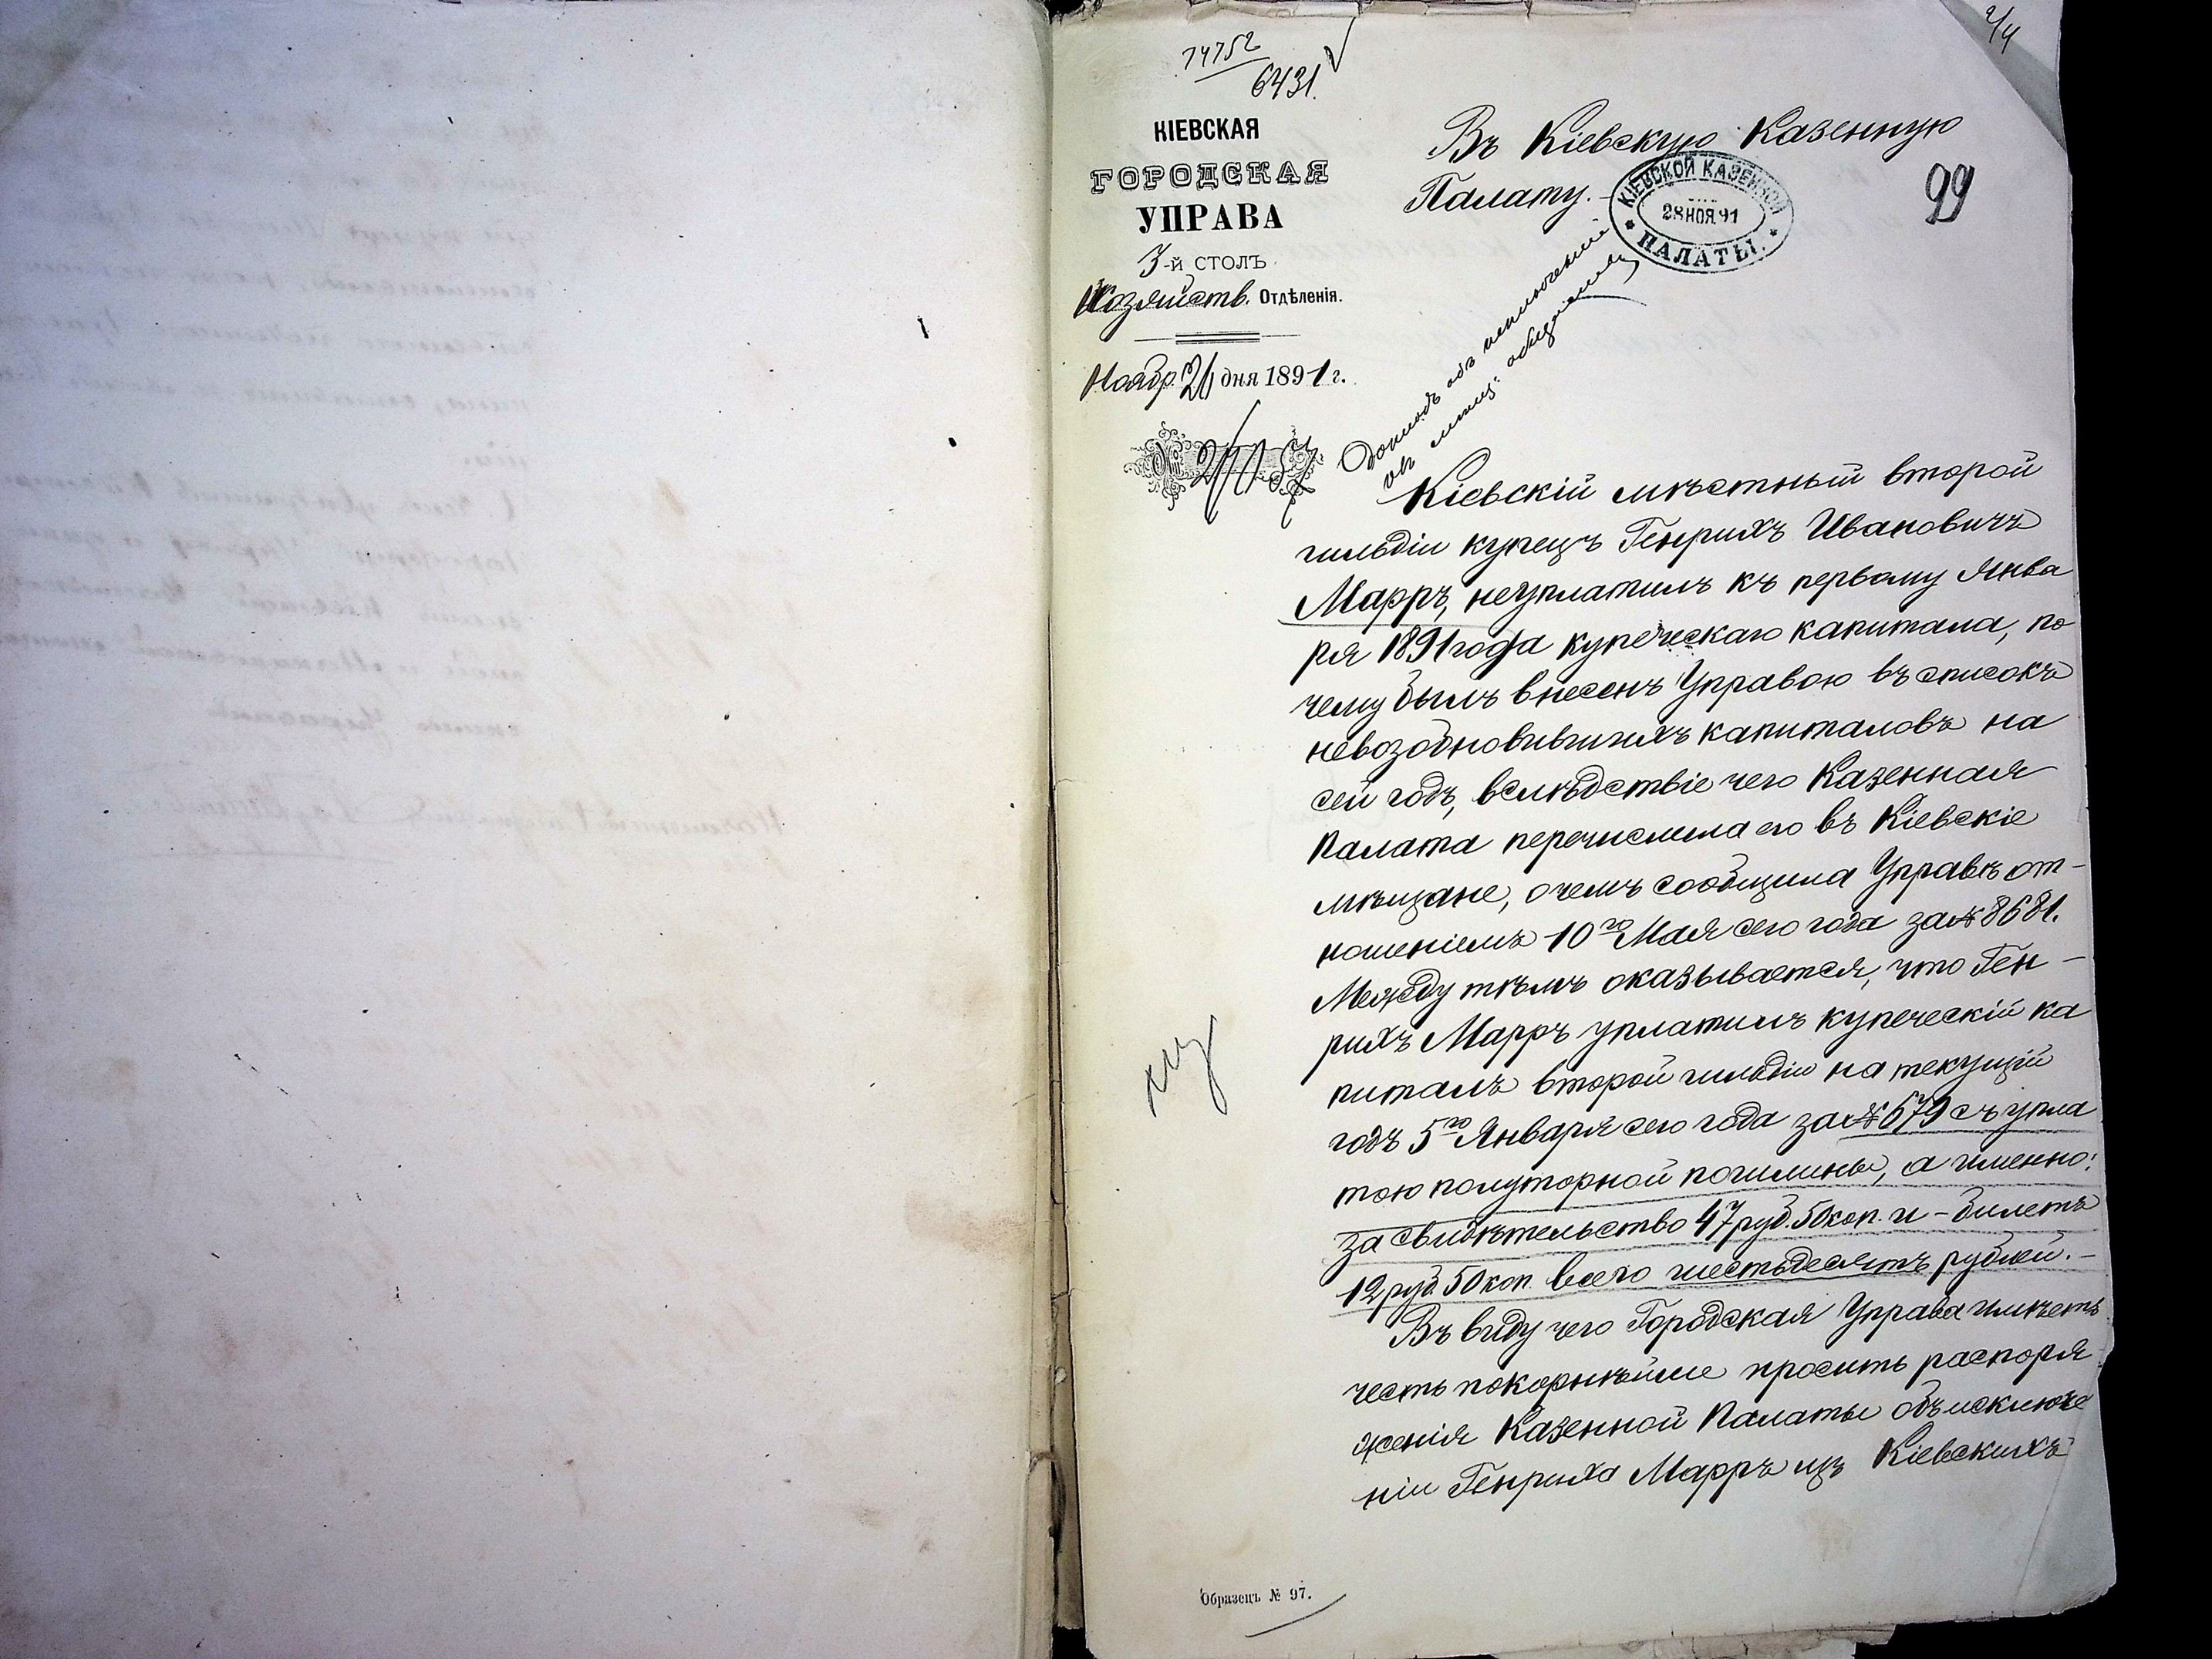 74752
6431.
2/4
КІЕВСКАЯ
ГОРОДСКАЯ
УПРАВА
3-й СТОЛЪ
Хозяйств. Отдѣленія.
Ноябр. 26 дня 1891 г.
№
Въ Кіевскую Казенную
Палату.
КІЕВСКОЙ КАЗЕННОЙ
28 НОЯ 91
ПАЛАТЫ.
99
Докладъ объ исключеніи
Кіевскій мѣстный второй
гильдіи купецъ Генрихъ Ивановичъ
Марръ, неуплатилъ къ первому Янва
ря 1891 года купеческаго капитала, по
чему былъ внесенъ Управою въ списокъ
невозобновившихъ капиталовъ на
сей годъ, вслѣдствіе чего Казенная
Палата перечислила его въ Кіевскіе
мѣщане, очемъ сообщила Управѣ от-
ношеніемъ 10го Мая сего года за № 8681.
Между тѣмъ оказывается, что Ген-
рихъ Марръ уплатилъ купеческій ка
питалъ второй гильдіи на текущій
годъ 5го Января сего года за № 679 съ упла
тою полуторной пошлины, а именно:
за свидѣтельство 47 руб. 50 коп. и - билетъ
12 руб. 50 коп. всего шестьдесятъ рублей.-
Въ виду чего Городская Управа имѣетъ
честь покорнѣйше просить распоря
женія Казенной Палаты объ исключе
ніи Генриха Марръ изъ Кіевскихъ
Образецъ № 97.